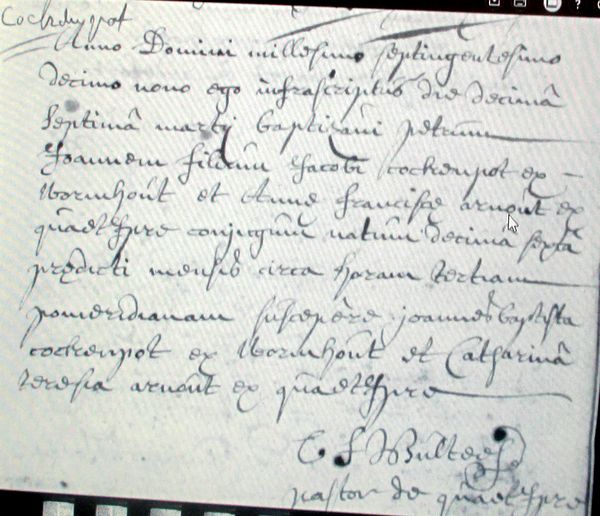 Cockenpot
Anno Domini millesimo septingentesimo
decimo nono ego infrascriptus die decimâ
septimâ martij baptizavi petrum
Joannem filium Jacobi cockenpot ex
Wormhoût et Anne francisce arnoût ex
quaetÿpre conjugum natum decimâ sextâ
predicti mensis circa horam tertiam
pomeridianam suscepere joannes baptista
cockenpot ex Wormhoût et Catharinâ
teresia arnoût ex quaetÿpre
pastor de quaetÿpre